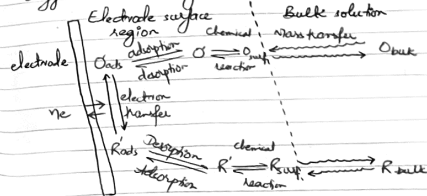 Electrode surface region
Bulk solution
electrode
Oads adsorption desorption O' Chemical reaction Osurf Mass transfer Obulk
ne
electron transfer
R'ads Desorption Adsorption R' chemical reaction Rsurf. R bulk